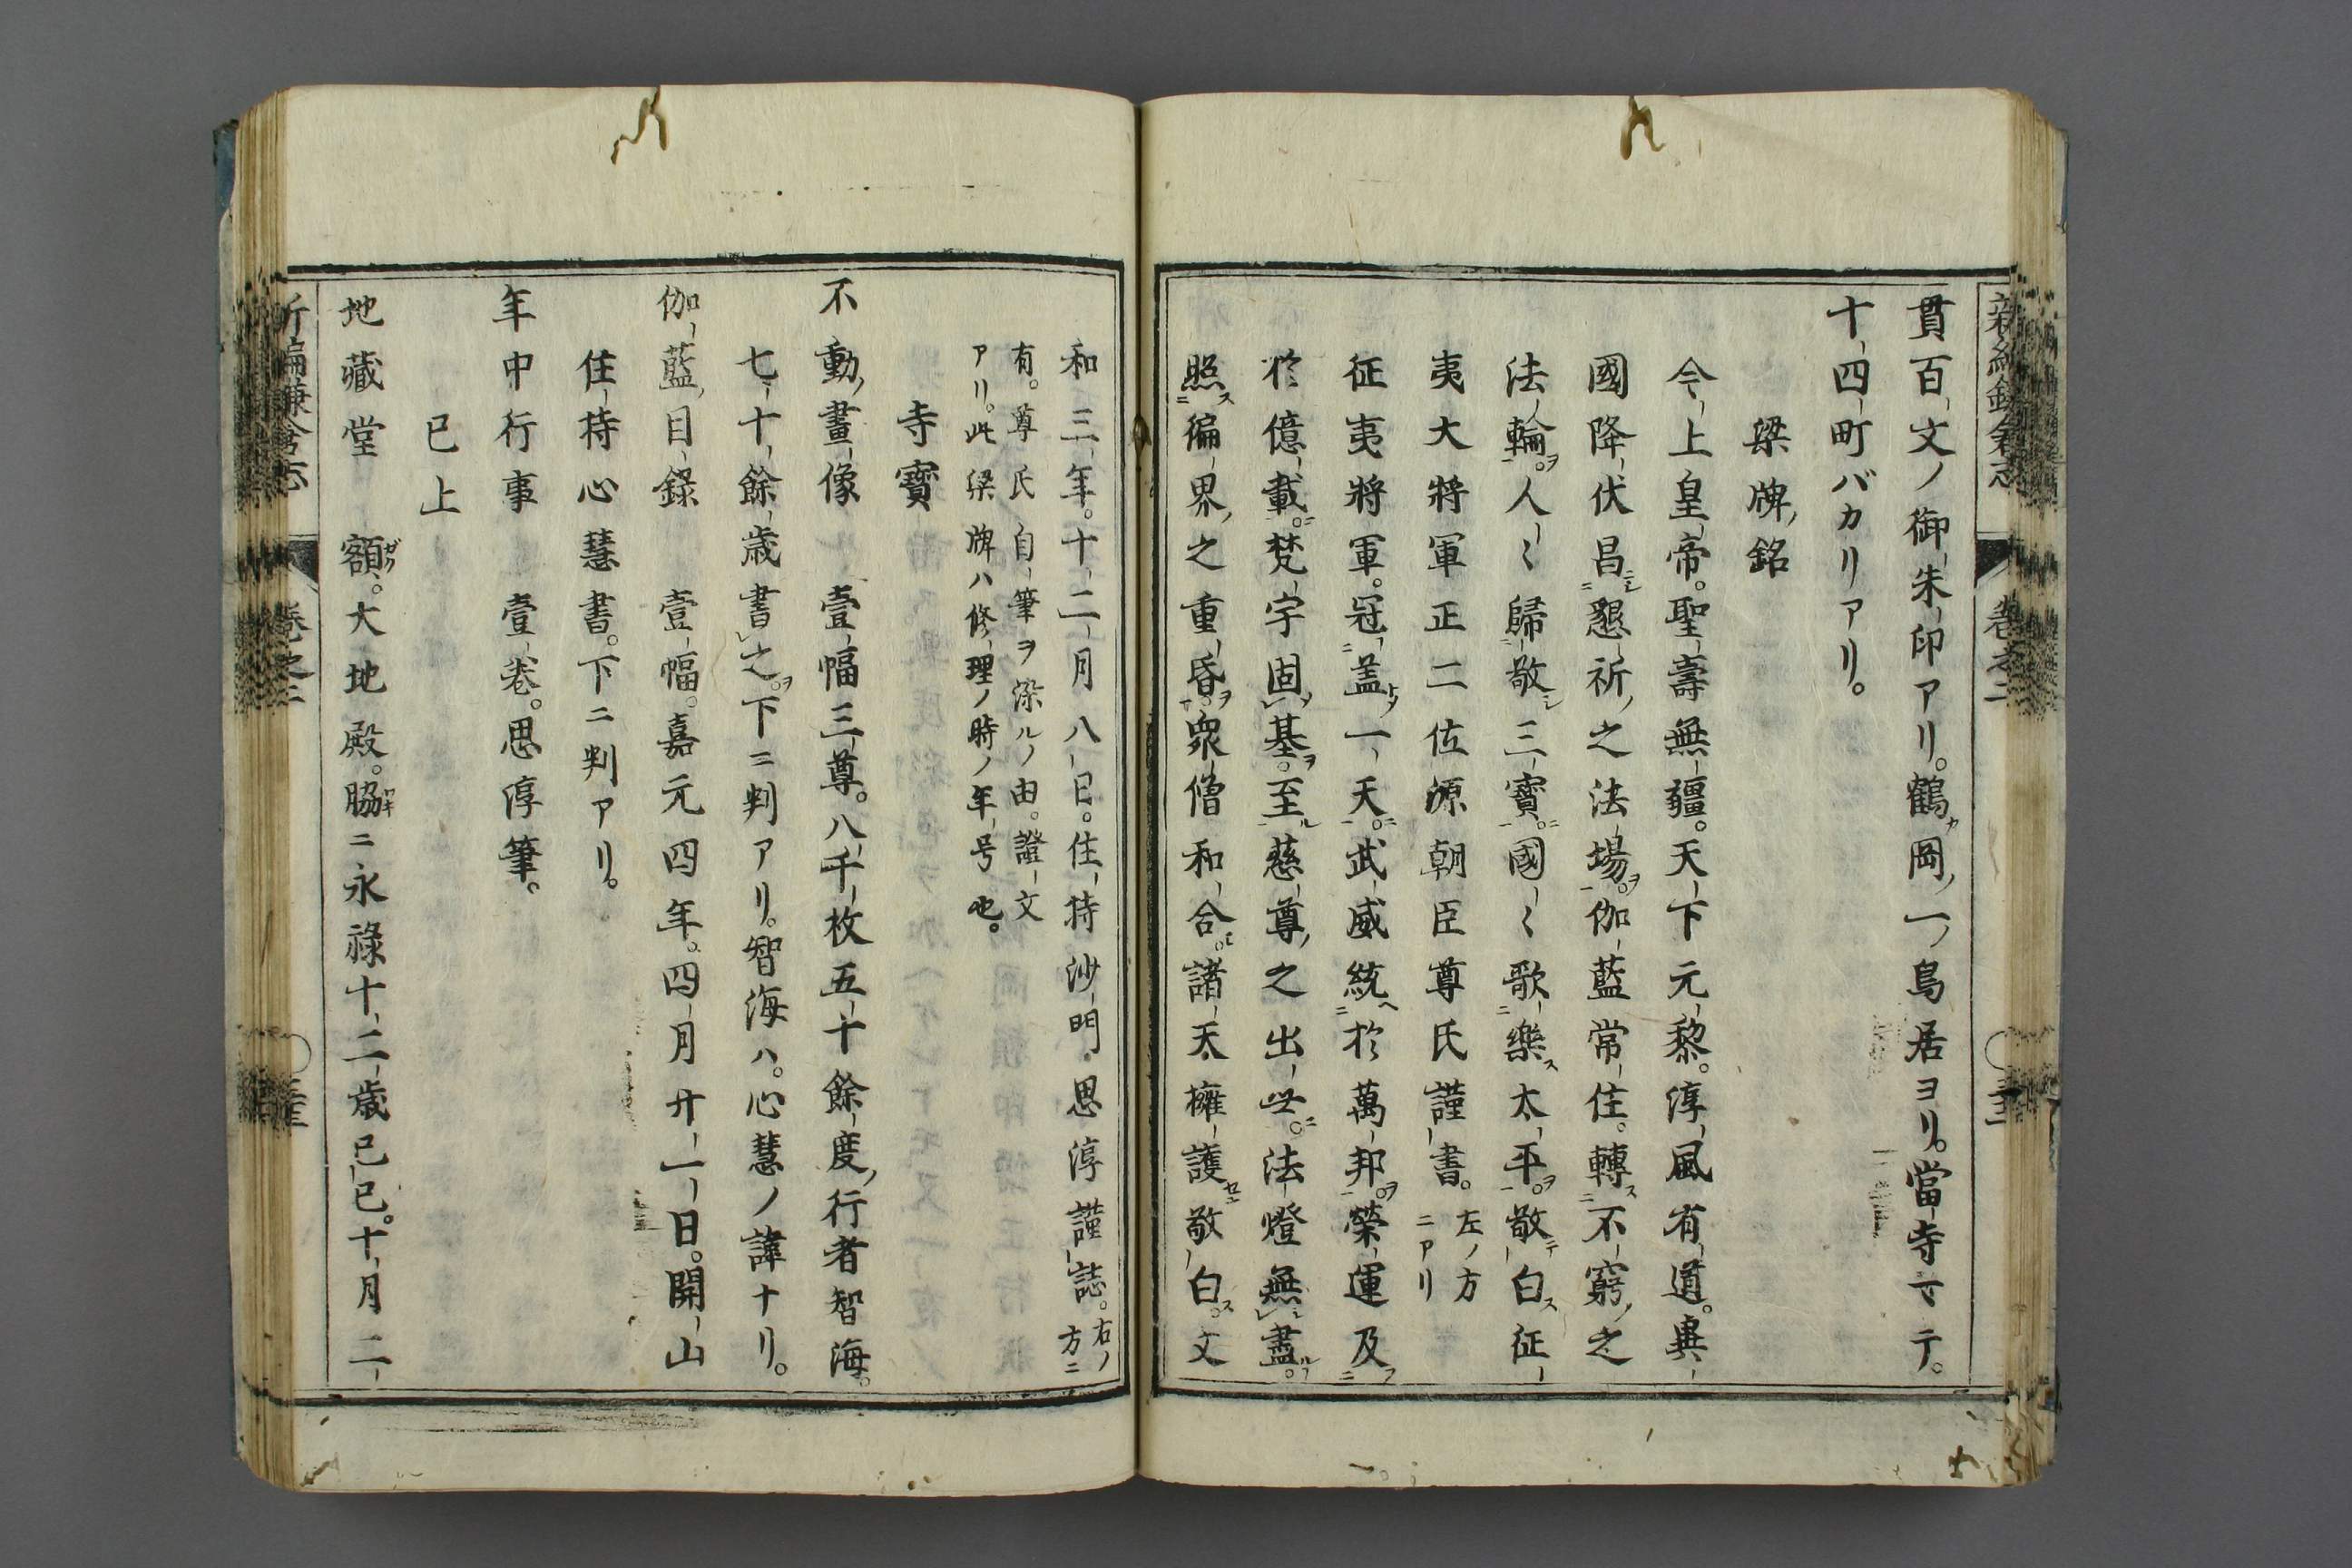 新編鎌倉志　卷之二
貫百文ノ御朱印アリ。鶴岡一ノ鳥居ヨリ。當寺マテ。
十四町バカリアリ。
梁牌銘
今上皇帝。聖壽無疆。天下元黎。淳風有道。與
國降伏昌懇祈之法場。伽藍常住。轉不窮之
法輪。人〻歸敬三寶。國〻歌樂太平。敬白征
夷大將軍正二位源朝臣尊氏謹書。左ノ方ニアリ
征夷將軍。冠盖一天。武威統於萬邦。榮運及
於億載。梵宇固基。至慈尊之出世。法燈無盡。
照徧界之重昏。衆僧和合。諸天擁護敬白。文
和三年。十二月八日。住持沙門思淳謹誌。右ノ方ニ
有。尊氏自筆ヲ染ルノ由。證文
アリ。此梁牌ハ修理ノ時ノ年号也。
寺寶
不動畫像　壹幅三尊。八千枚五十餘度行者智海。
七十餘歳書之。下ニ判アリ。智海ハ。心慧ノ諱ナリ。
伽藍目錄　壹幅。嘉元四年。四月廿一日。開山
住持心慧書。下ニ判アリ。
年中行事　壹卷。思淳筆。
已上
地藏堂　額。大地殿。脇ニ永祿十二歳己巳。十月二
新編鎌倉志　卷之二